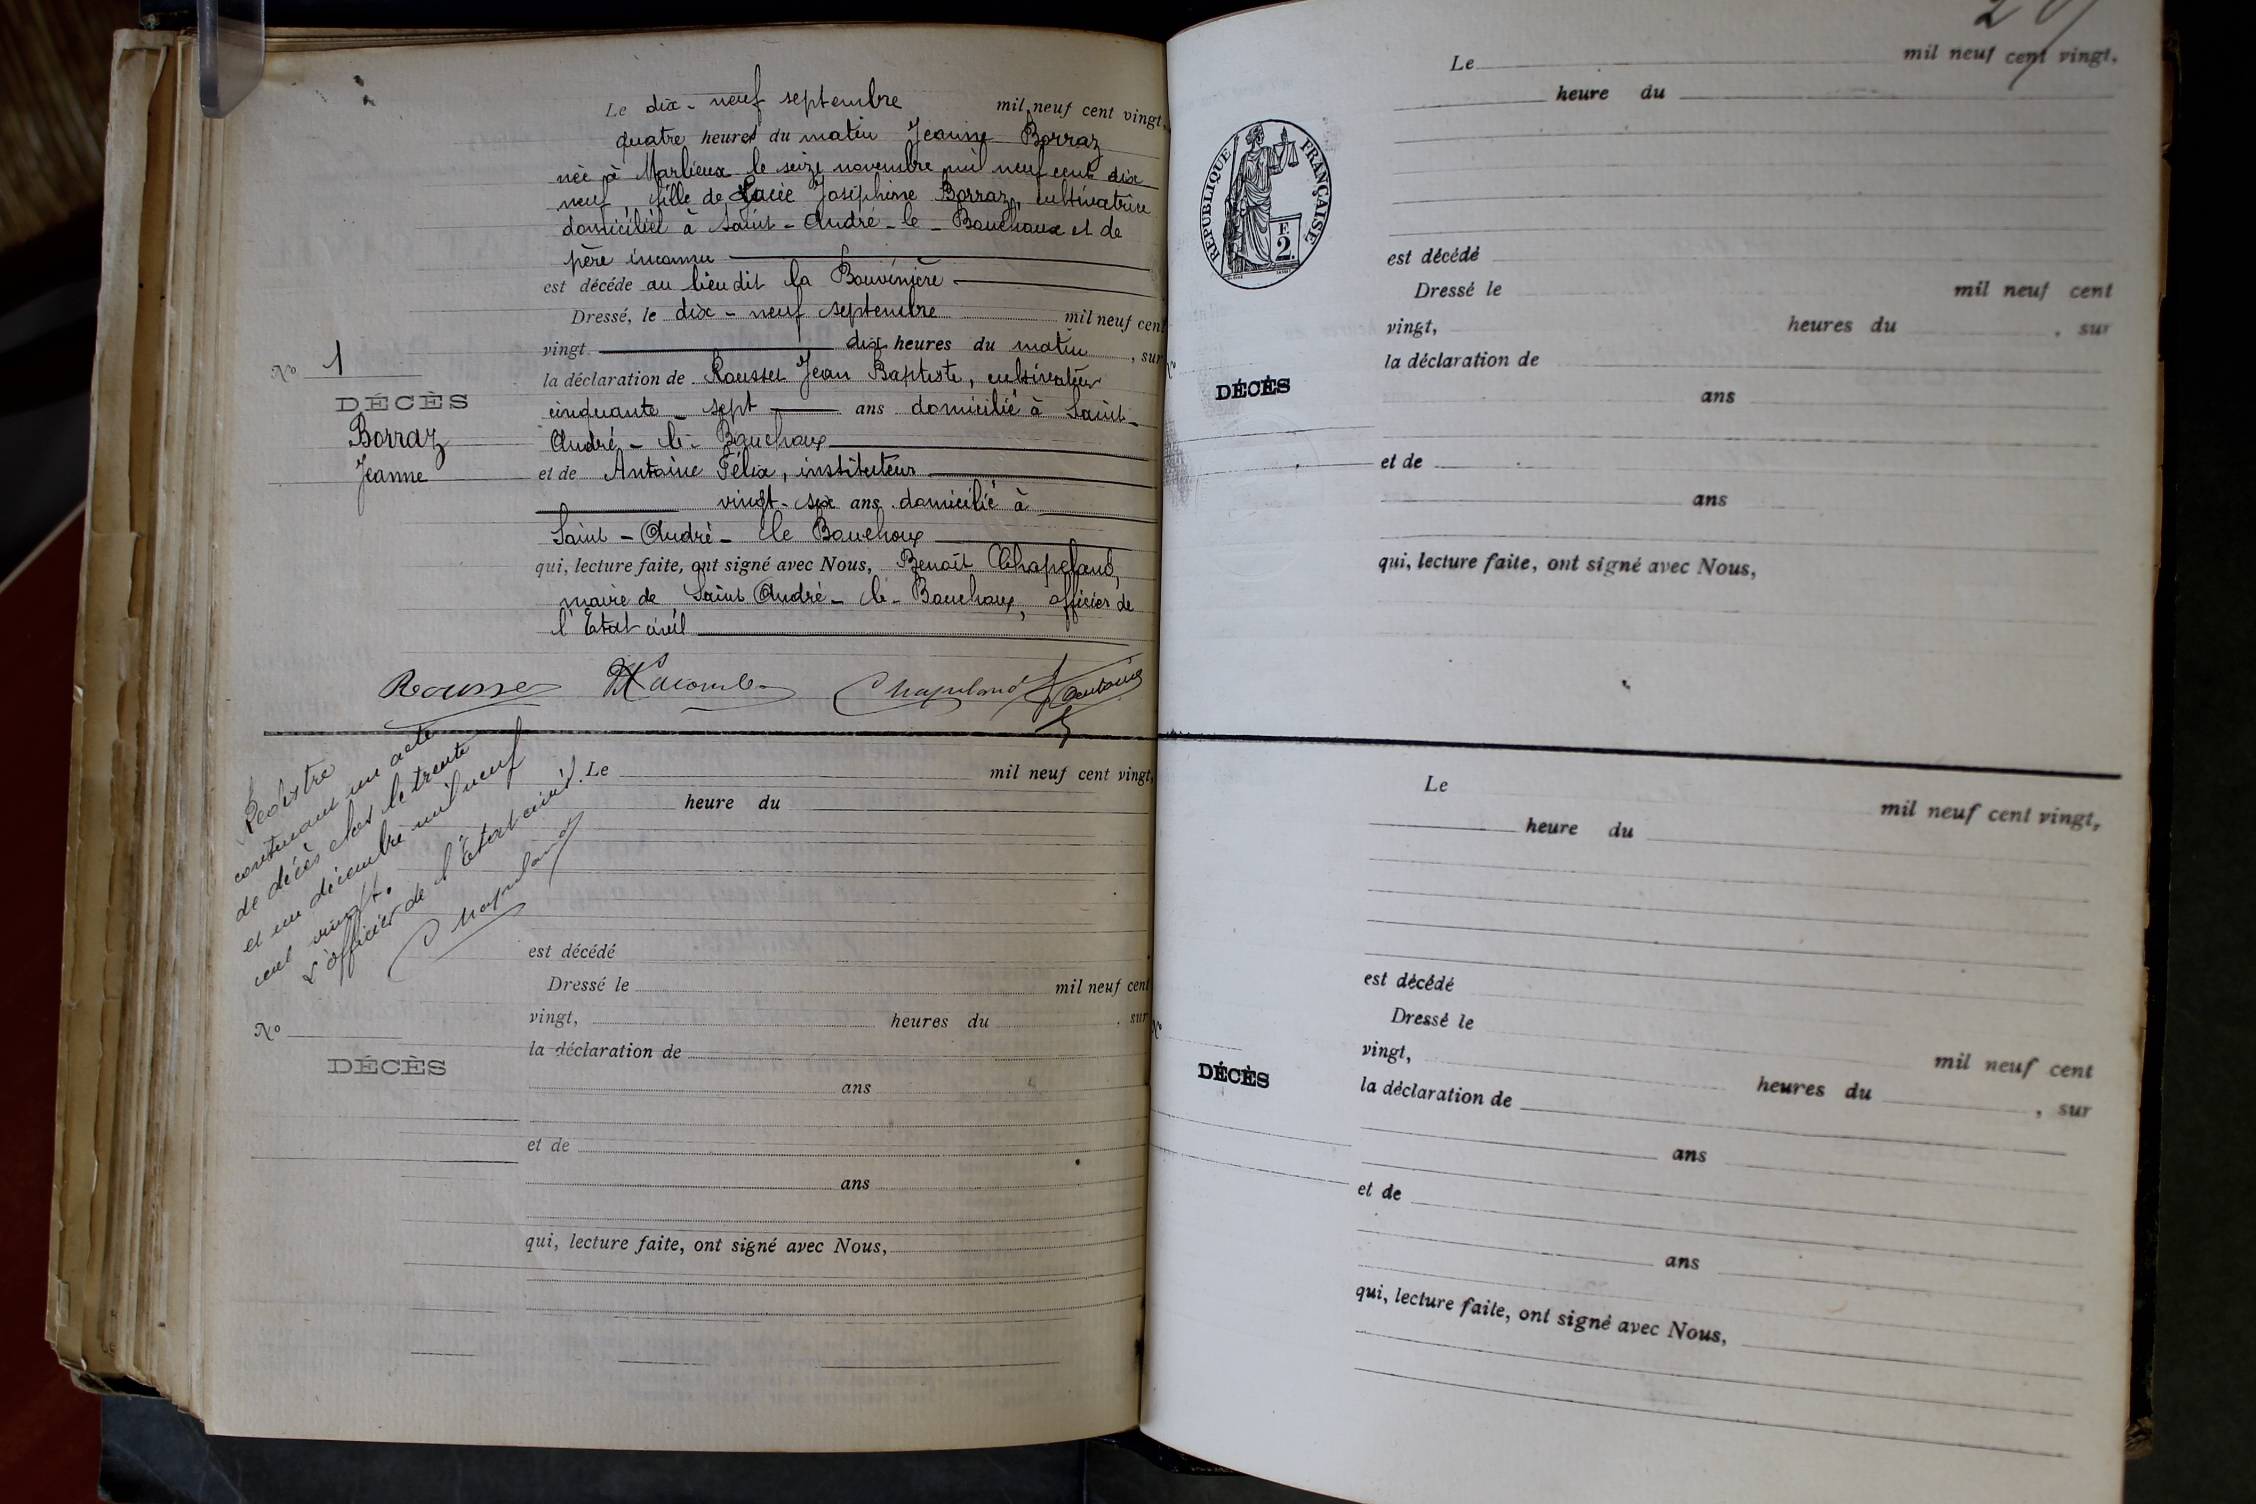 Le dix-neuf septembre mil neuf cent vingt,
quatre heures du matin Jeanne Borraz
née à Marlieux le seize novembre mil neuf cent dix
neuf, fille de Joséphine Borraz, cultivatrice
domiciliée à Saint-André-le-Bouchoux et de
père inconnu
est décédé au lieu dit la Bouvinière
Dressé, le dix-neuf septembre mil neuf cent
vingt dix heures du matin, sur
la déclaration de Rousset Jean Baptiste, cultivateur
cinquante-sept ans domicilié à Saint-
André-le-Bouchoux
et de Antoine Félix, instituteur
vingt-six ans domicilié à
Saint-André-le Bouchoux
qui, lecture faite, ont signé avec Nous, Benoît Chapeland,
maire de Saint André-le-Bouchoux, officier de
l'Etat civil
No 1
DÉCÈS
Borraz
Jeanne
Rousset Chapeland Antoine
Registre
contenant un acte
de décès clos le trente
et un décembre mil neuf
cent vingt.
L'officier de l'Etat civil.
Chapeland
Le mil neuf cent vingt,
heure du
est décédé
Dressé le mil neuf cent
vingt, heures du , sur
No
DÉCÈS
la déclaration de
ans
et de
ans
qui, lecture faite, ont signé avec Nous,
Le mil neuf cent vingt,
heure du
RÉPUBLIQUE FRANÇAISE
E
2.
est décédé
Dressé le mil neuf cent
vingt, heures du , sur
No
la déclaration de
DÉCÈS
ans
et de
ans
qui, lecture faite, ont signé avec Nous,
Le mil neuf cent vingt,
heure du
est décédé
Dressé le mil neuf cent
vingt, heures du , sur
No
DÉCÈS
la déclaration de
ans
et de
ans
qui, lecture faite, ont signé avec Nous,